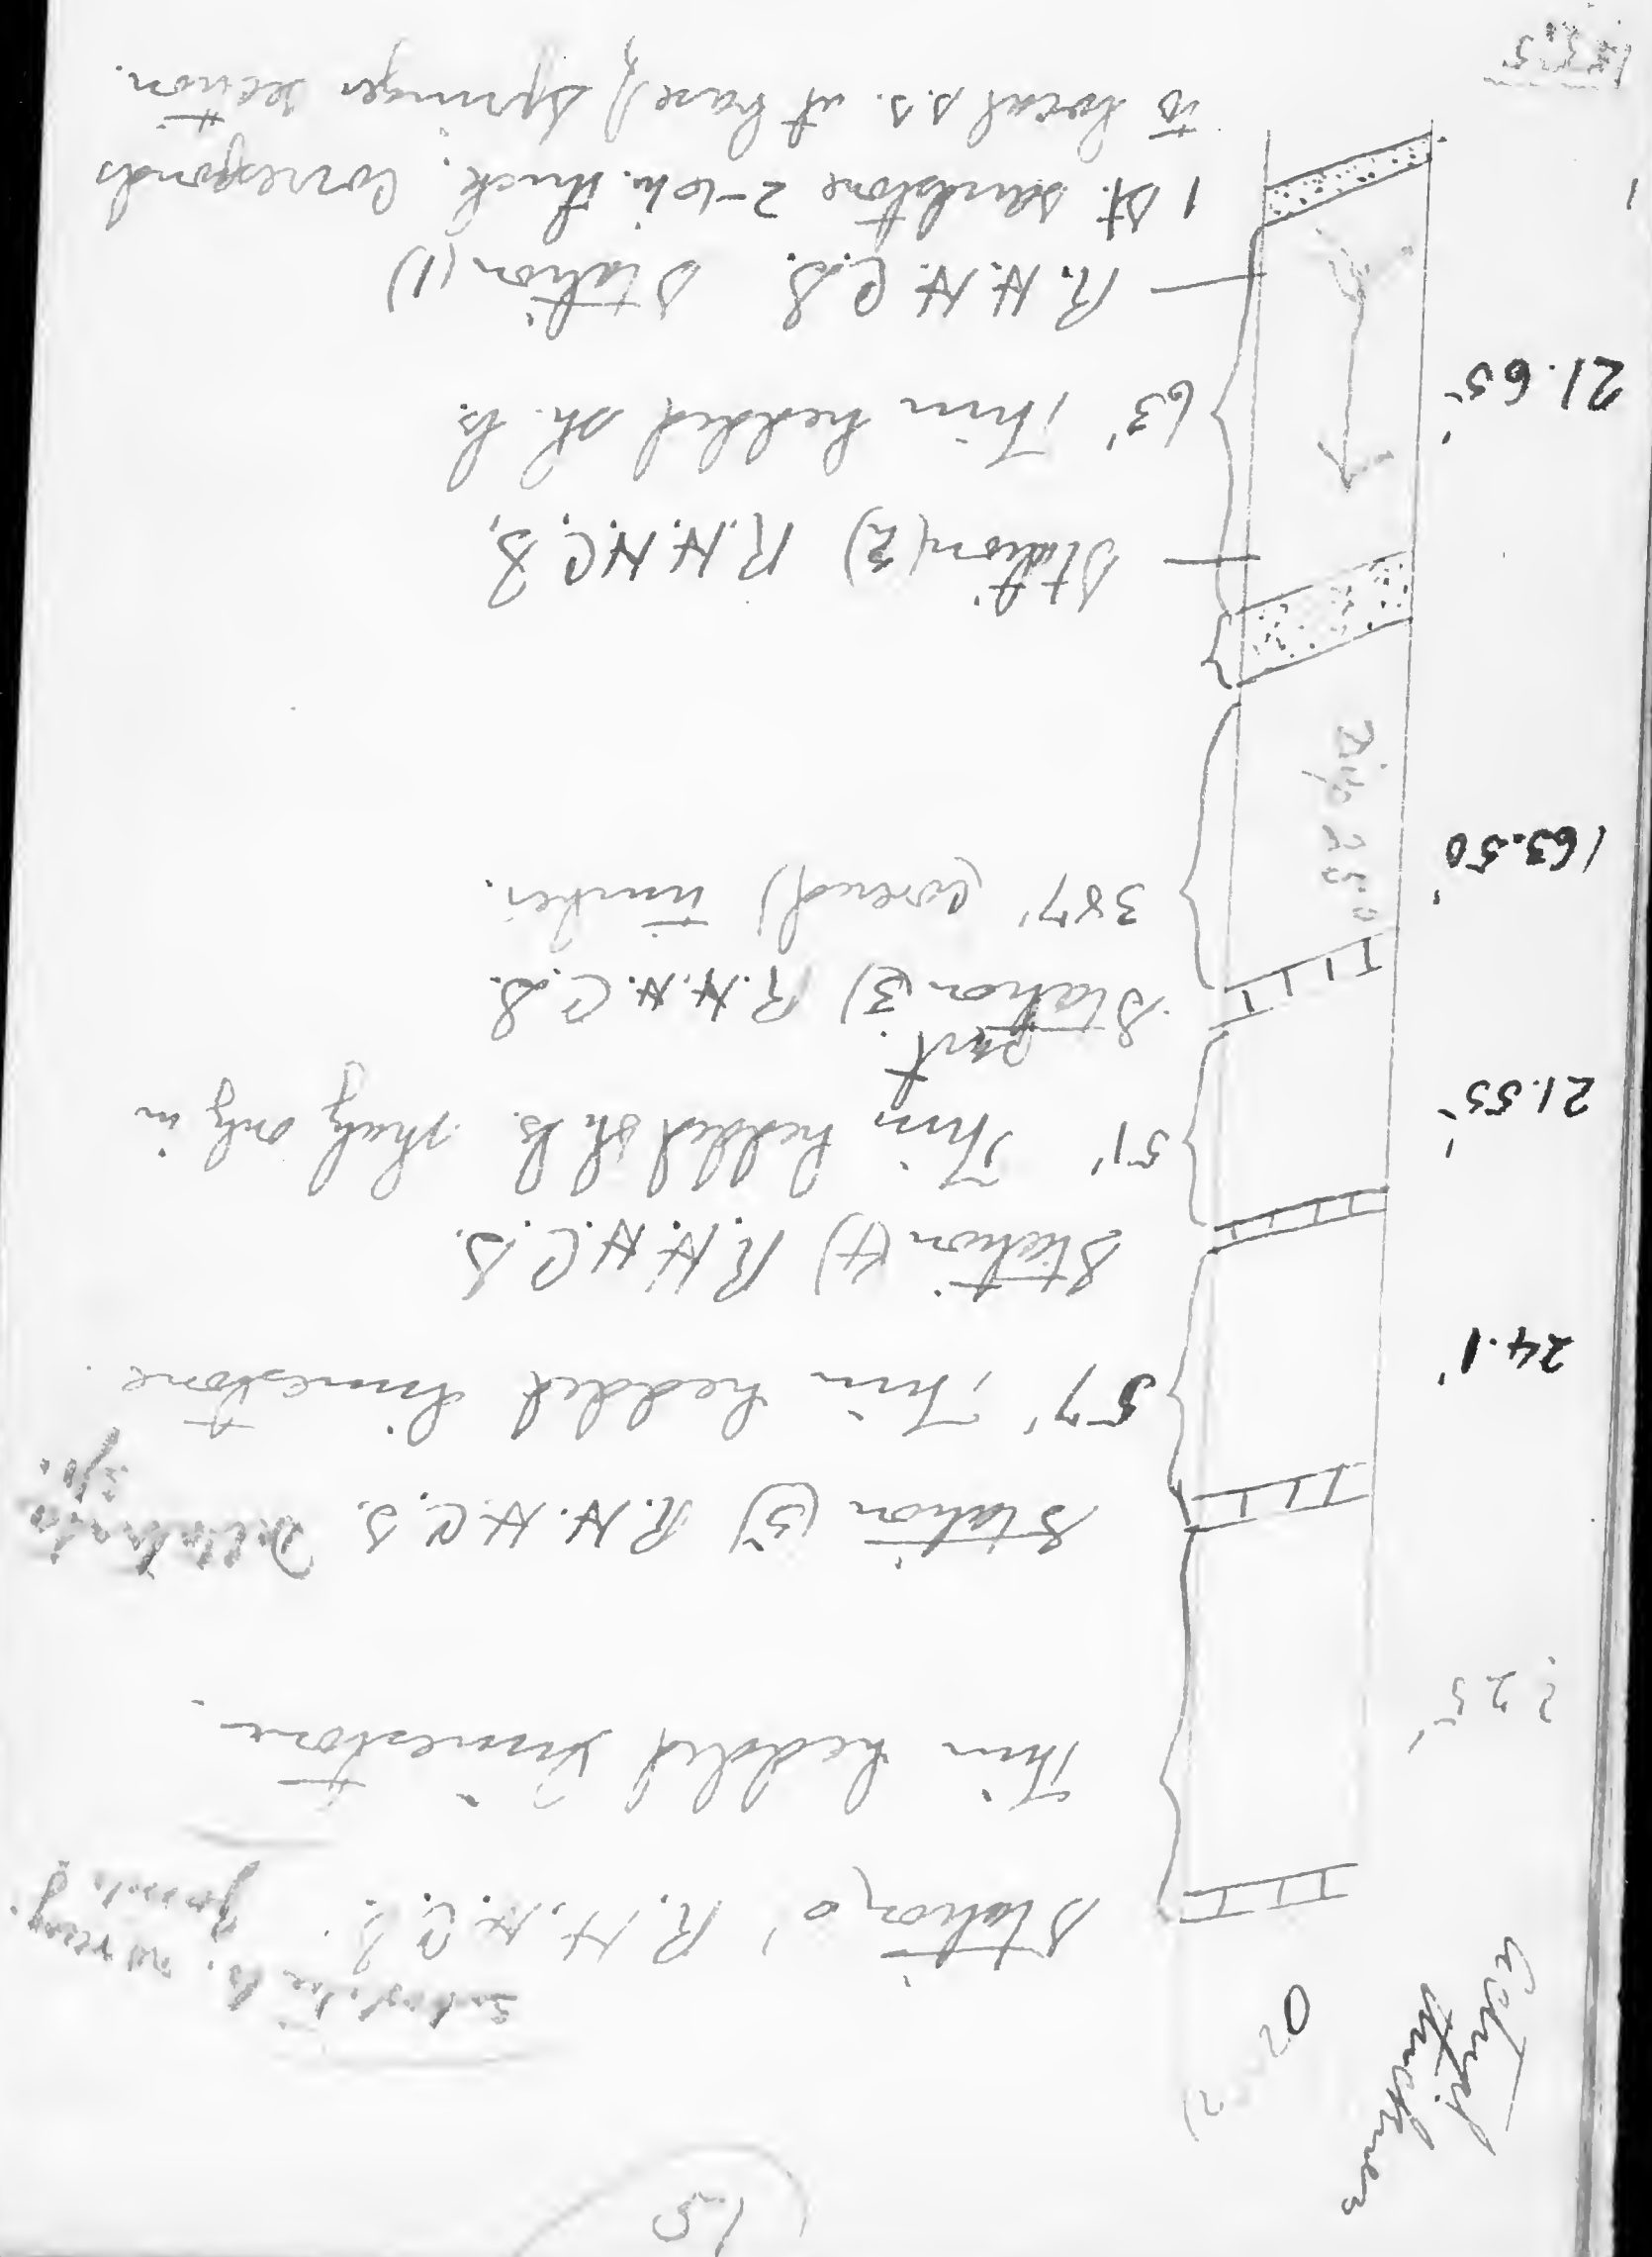 150
Actual
thickness
O
Station 0' R.H.H.C.S.
Thin bedded limestone.
225'
Station (5) R.H.H.C.S.
57' Thin bedded limestone.
24.1'
Station (4) R.H.H.C.S.
51' Thin bedded sh. ls. shaly only in
part.
21.55'
Station (3) R.H.H.C.S.
387' (covered) timber.
163.50'
Dip 25°
Station (2) R.H.H.C.S.
63' Thin bedded sh. ls.
21.65'
R.H.H.C.S. Station (1)
1 st. sandstone 2-10 in. thick. Corresponds
to local s.s. at base of Springer section.
1